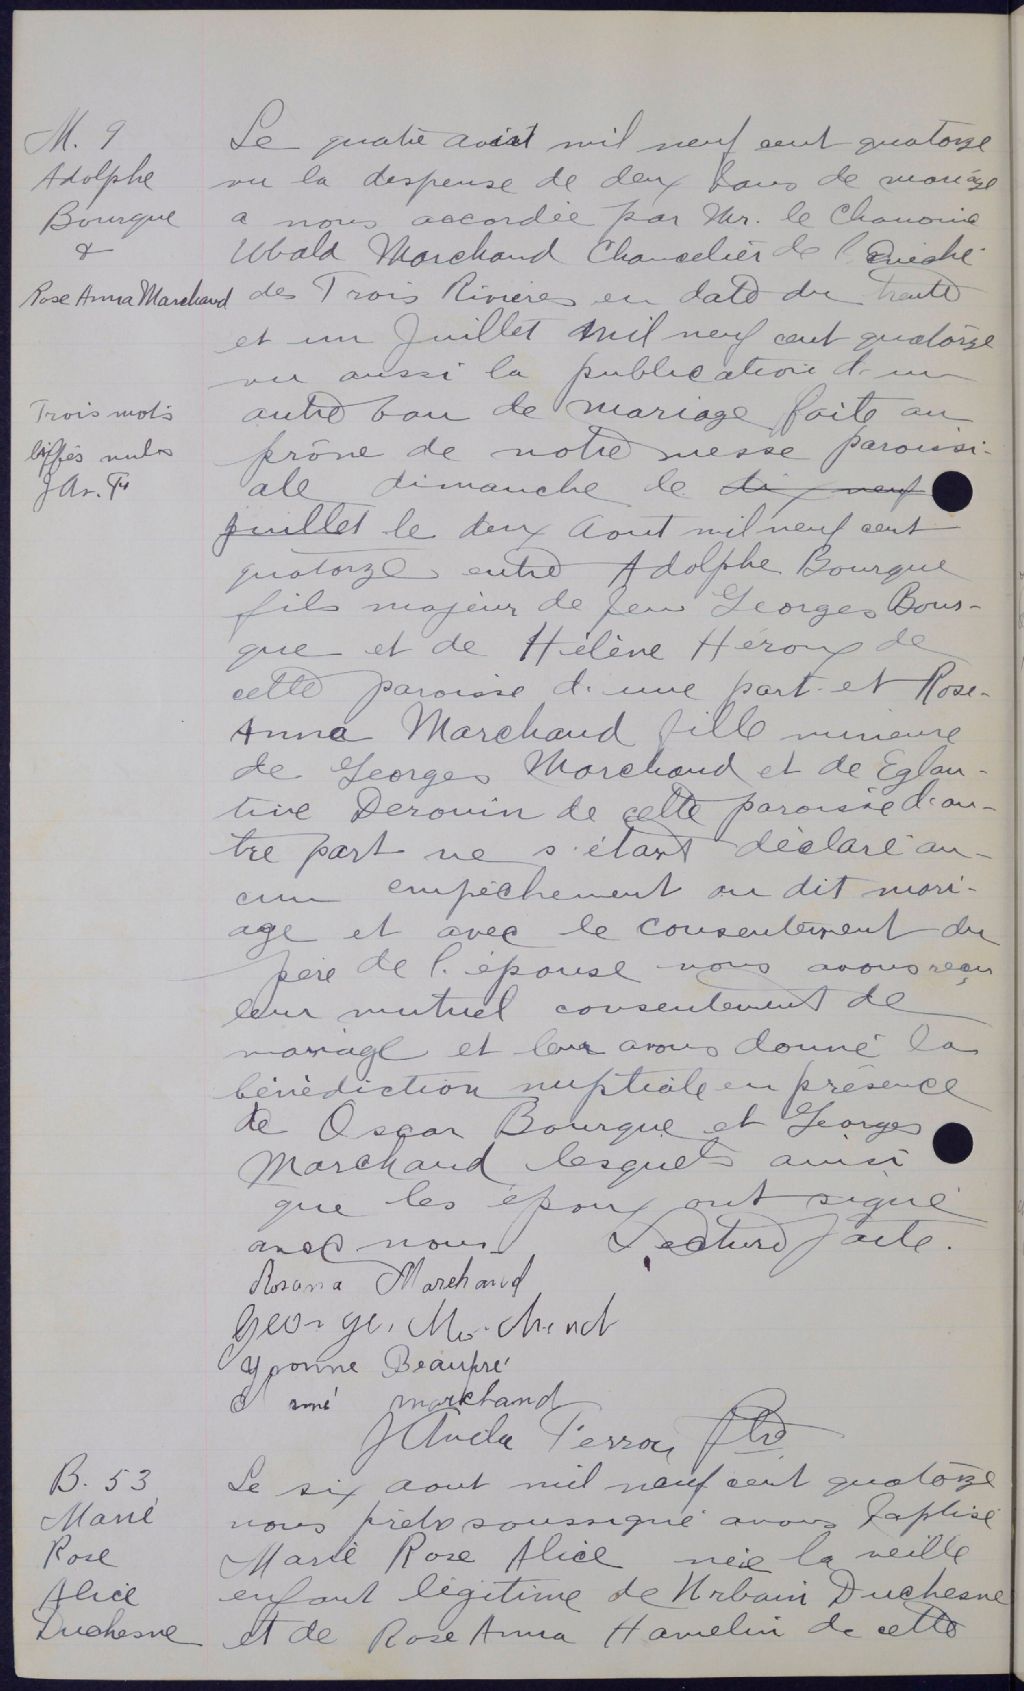 M. 9
Adolphe
Bourque
&
Rose Anna Marchand
Le quatre aout mil neuf cent quatorze
vu la dispense de deux bans de mariage
a nous accordée par Mr. le Chanoine
Ubald Marchand Chancelier de l'Evêché
des Trois Rivières en date du trente
et un Juillet mil neuf cent quatorze
vu aussi la publication d'un
autre ban de mariage faite au
Trois mots
biffés nuls
prône de notre messe paroissi-
ale dimanche le dix neuf
juillet le deux Aout mil neuf cent
quatorze entre Adolphe Bourque
fils majeur de feu Georges Bour-
que et de Hélène Héroux de
cette paroisse d'une part et Rose-
Anna Marchand fille mineure
de Georges Marchand et de Eglan-
tine Derouin de cette paroisse d'au-
tre part ne s'étant déclaré au-
cun empêchement au dit mari-
age et avec le consentement du
père de l'épouse nous avons reçu
leur mutuel consentement de
mariage et leur avons donné la
bénédiction nuptiale en présence
de Oscar Bourque et Georges
Marchand lesquels ainsi
que les époux ont signé
avec nous. Lecture faite.
Rosana Marchand
George Marchand
Yvonne Beaupré
marchand
Ptre
B. 53
Marie
Rose
Alice
Duchesne
Le six aout mil neuf cent quatorze
nous prêtre soussigné avons baptisé
Marie Rose Alice née la veille
enfant légitime de Urbain Duchesne
et de Rose Anna Hamelin de cette